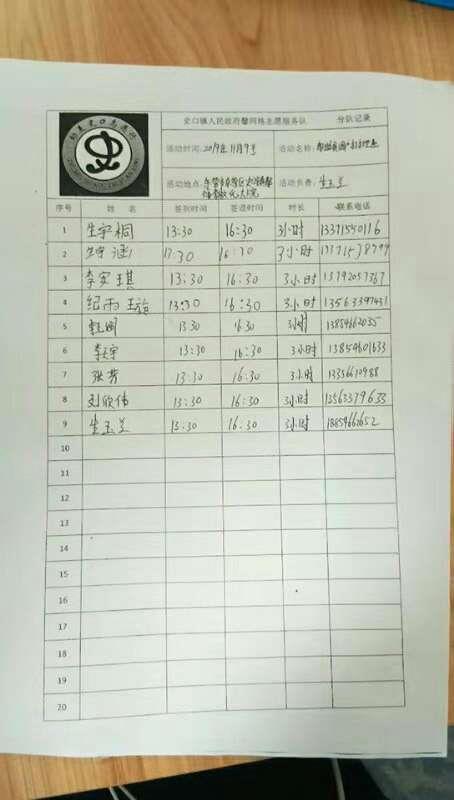 史口镇人民政府馨同格志愿服务队 分队记录
活动时间: 2019年11月9号 活动名称:
活动地点: 东营市东营区史口镇 活动负责: 生玉兰
文化大院
序号 姓名 签到时间 签退时间 时长 联系电话
1 生宇桐 13:30 16:30 3小时 13371550116
2 生宇涵 13:30 16:30 3小时
3 李安琪 13:30 16:30 3小时 13792057367
4 纪雨 13:30 16:30 3小时 13563397431
5 13:30 16:30 3小时 13854662055
6 李宇 13:30 16:30 3小时 13854601633
7 张芳 13:30 16:30 3小时 13356610988
8 刘欣伟 13:30 16:30 3小时 13563379633
9 生玉兰 13:30 16:30 3小时 18854666652
10
11
12
13
14
15
16
17
18
19
20